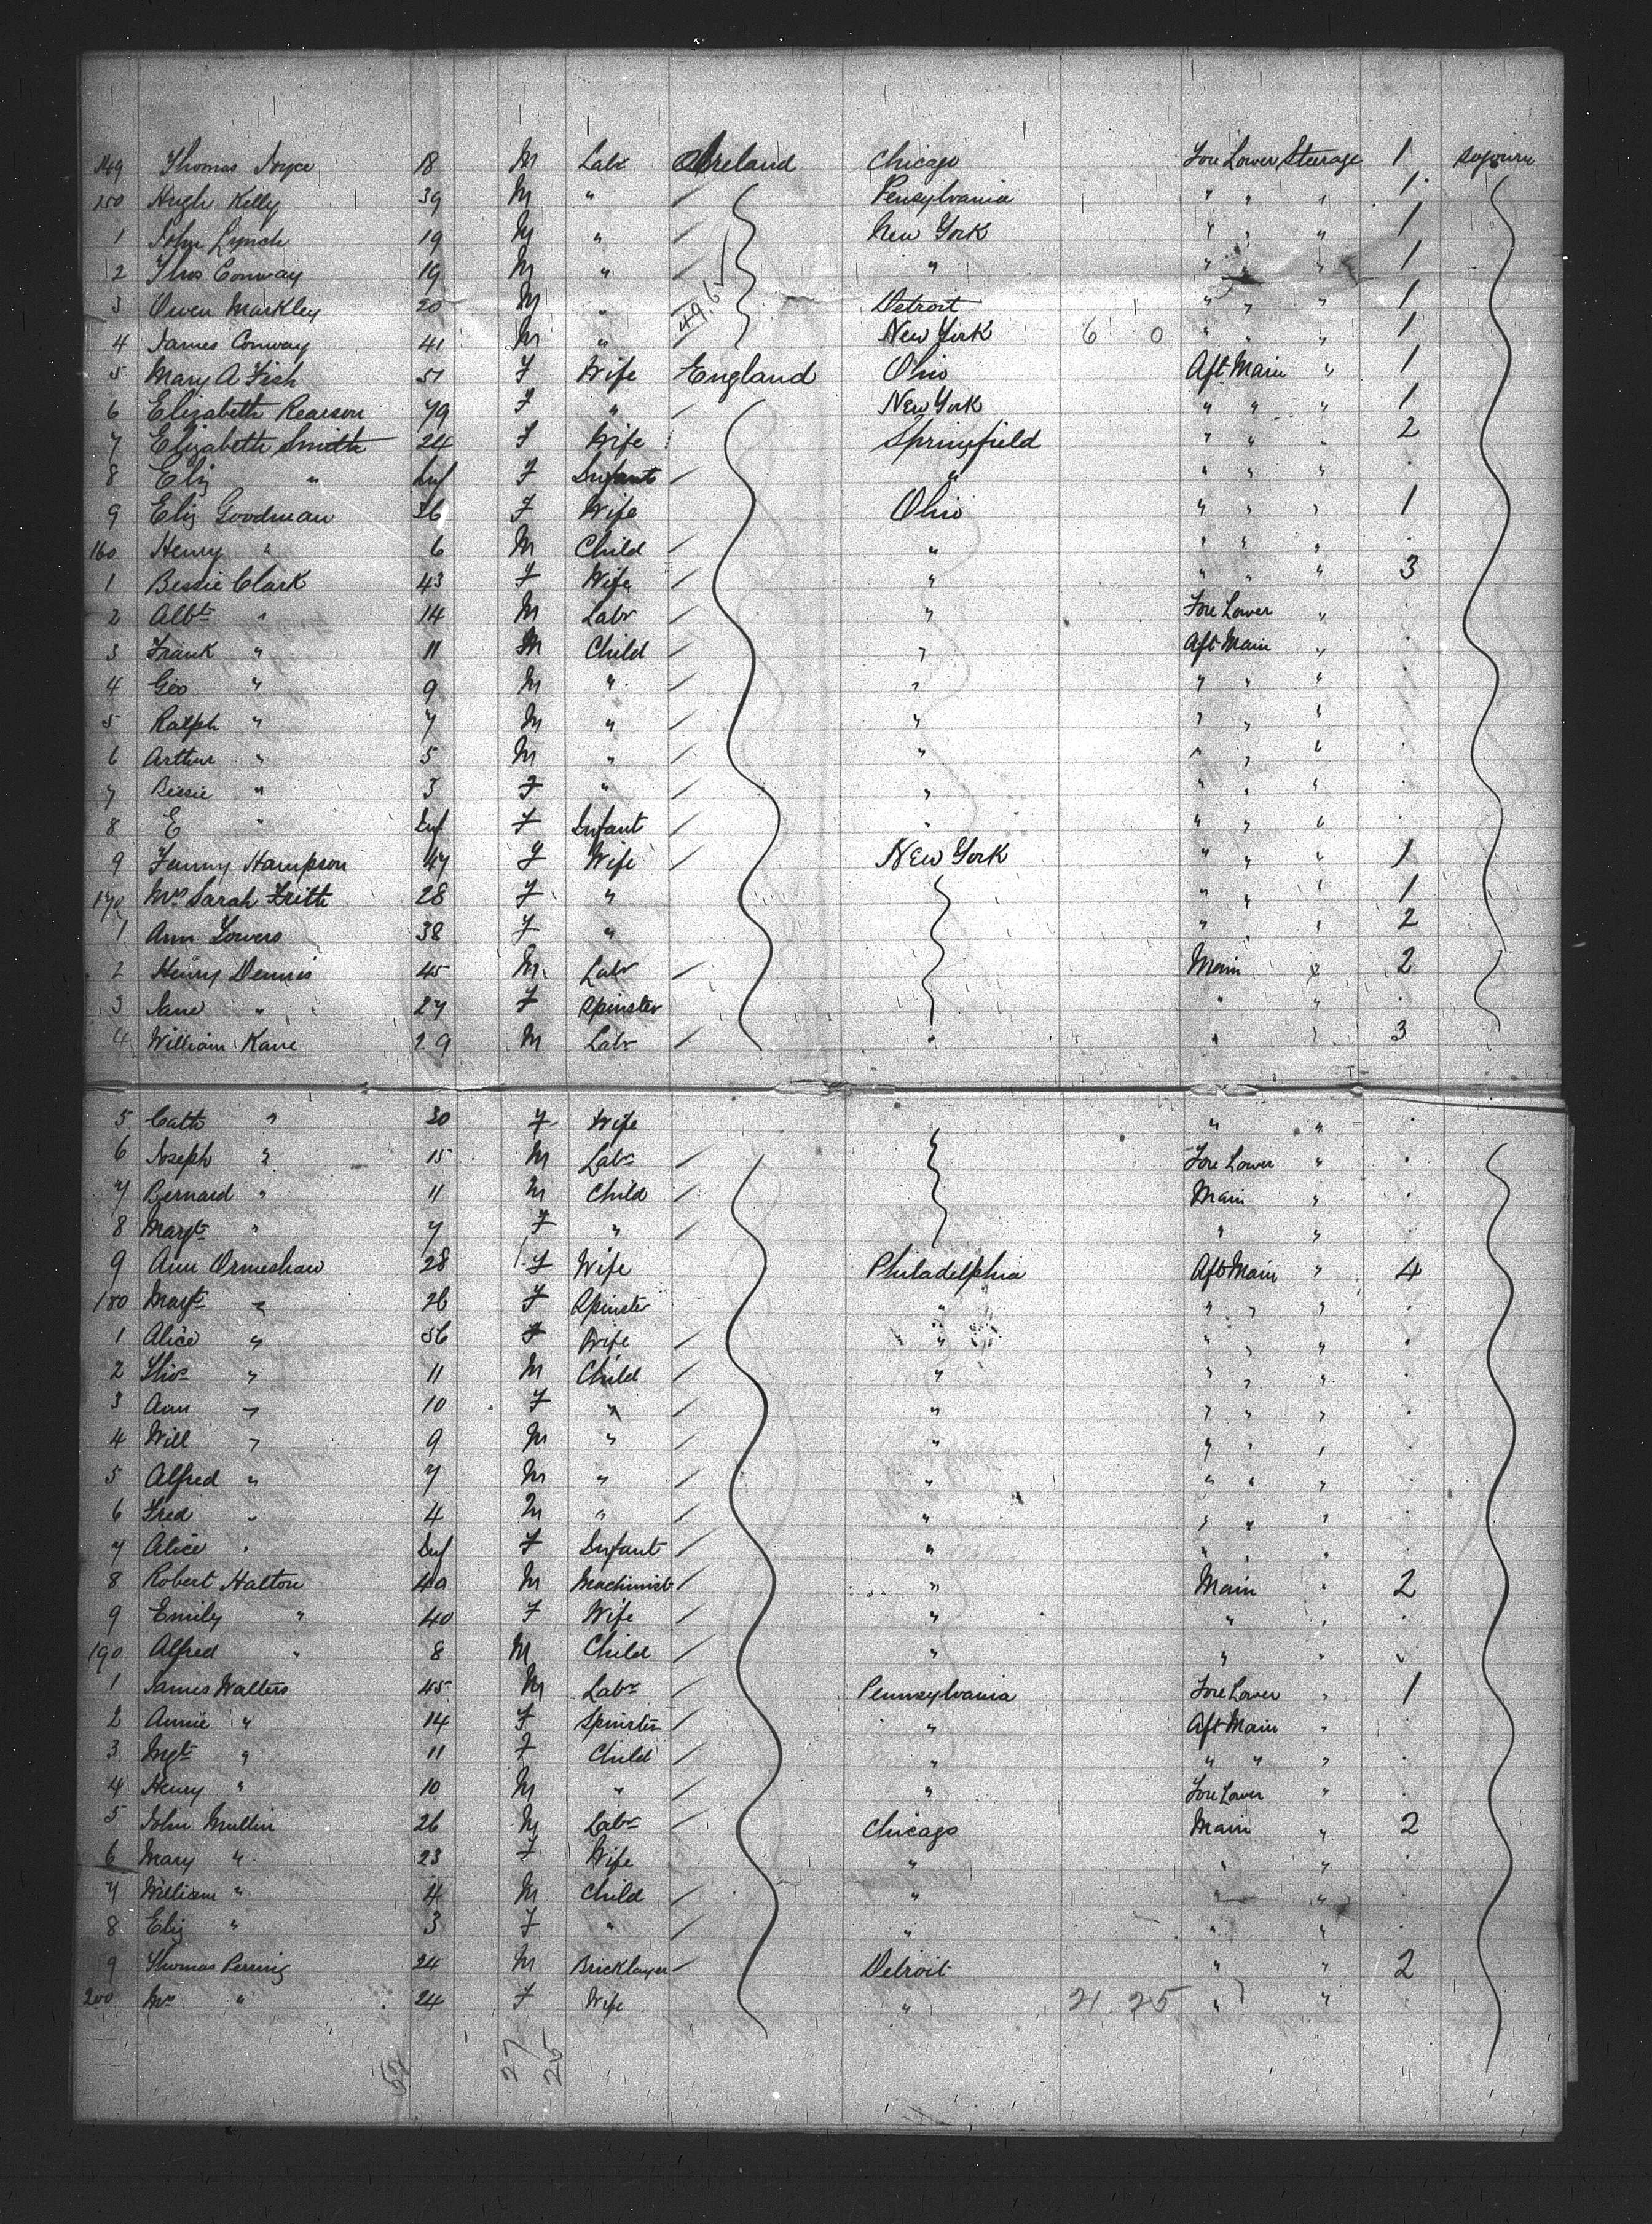 149 Thomas Joyce 18 M Labr Ireland Chicago Fore Lower Steerage 1 Sojourn
150 Hugh Kelly 39 M " Pensylvania " " " 1
1 John Lynch 19 M " New York " " " 1
2 Thos Conway 19 M " " " " " 1
3 Owen Markley 20 M " Detroit " " " 1
4 James Conway 41 M " New York 6 0 " " " 1
5 Mary A Fish 51 F Wife England Ohio Aft Main " 1
6 Elizabeth Rearson 49 F " New York " " " 1
7 Elizabeth Smith 24 F Wife Springfield " " " 2
8 Eliz " Inf F Infant " " " "
9 Eliz Goodman 36 F Wife Ohio " " " 1
160 Henry " 6 M Child " " " "
1 Bessie Clark 43 F Wife " " " " 3
2 Albt " 14 M Labr " Fore Lower "
3 Frank " 11 M Child " Aft Main "
4 Geo " 9 M " " " " "
5 Ralph " 7 M " " " " "
6 Arthur " 5 M " " " " "
7 Bessie " 3 F " " " " "
8 E " Inf F Infant " " " "
9 Fanny Hampson 47 F Wife New York " " " 1
170 Mrs Sarah Frith 28 F " " " " 1
1 Ann Lowers 38 F " " " " 2
2 Henry Dennis 45 M Labr Main " 2
3 Jane " 27 F Spinster " "
4 William Kane 29 M Labr " " " 3
5 Cath " 30 F Wife " "
6 Joseph " 15 M Labr Fore Lower "
7 Bernard " 11 M Child Main "
8 Margt " 7 F " " "
9 Ann Ormeshaw 28 F Wife Philadelphia Aft Main " 4
180 Margt " 26 F Spinster " " " "
1 Alice " 56 F Wife " " " "
2 Thos " 11 M Child " " " "
3 Ann " 10 F " " " " "
4 Will " 9 M " " " " "
5 Alfred " 7 M " " " " "
6 Fred " 4 M " " " " "
7 Alice " Inf F Infant " " " "
8 Robert Halton 40 M Machinist " Main " 2
9 Emily " 40 F Wife " " "
190 Alfred " 8 M Child " " "
1 James Walters 45 M Labr Pennsylvania Fore Lower " 1
2 Annie " 14 F Spinster " Aft Main "
3 Mgt " 11 F Child " " " "
4 Henry " 10 M " " Fore Lower "
5 John Mullin 26 M Labr Chicago Main " 2
6 Mary " 23 F Wife " " "
7 William " 4 M Child " " "
8 Eliz " 3 F " " " "
9 Thomas Perring 24 M Bricklayer Detroit " " 2
200 Mrs " 24 F Wife " 21 25 " "
52 27 25